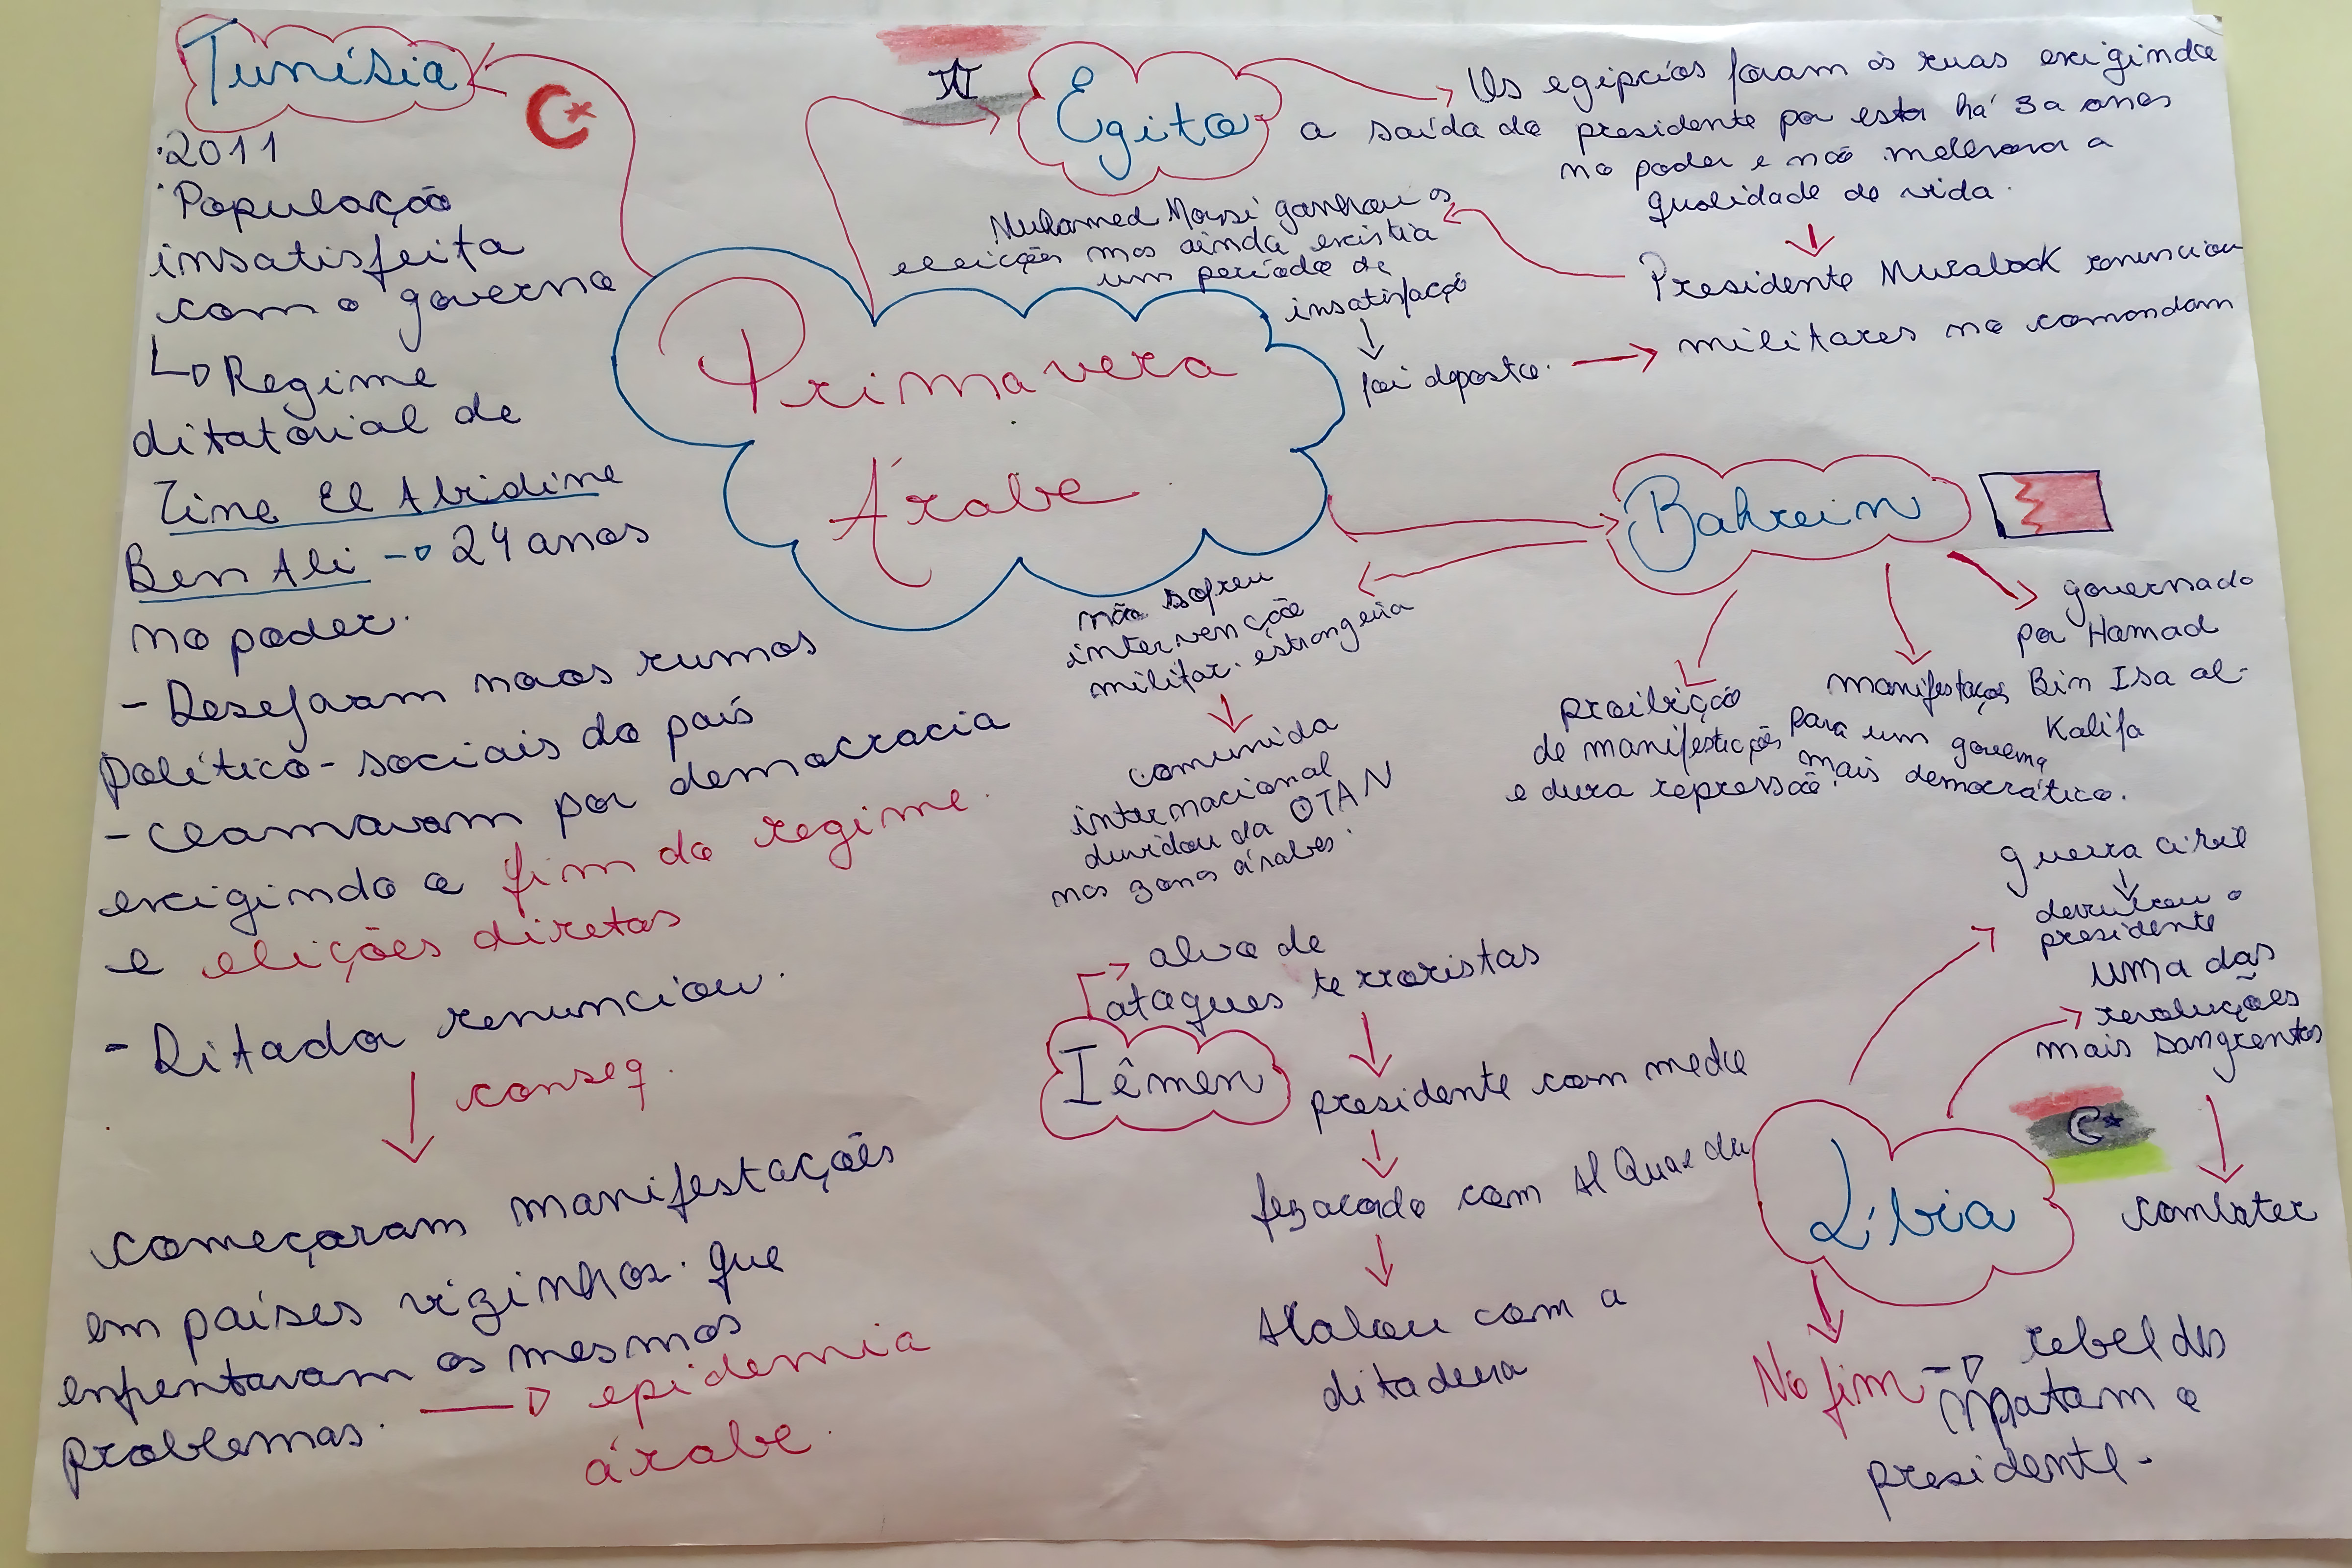 Tunísia
·2011
·População
insatisfeita
com o governo
Regime
ditatorial de
Zine El Abidine
Ben Ali → 24 anos
no poder.
- Desejavam novos rumos
político-sociais do país
- Clamavam por democracia
exigindo o fim do regime.
e eleições diretas
- Ditador renunciou.
conseq.
começaram manifestações
em países vizinhos que
enfrentavam os mesmos
problemas. → epidemia
árabe.
Primavera
Árabe
Egito
Os egípcios foram às ruas exigindo
a saída do presidente por estar há 30 anos
no poder e não melhorar a
qualidade de vida.
Presidente Mubarack renunciou
militares no comandam
Muhamed Morsi ganhou as
eleições mas ainda existia
um período de
insatisfaçõ
foi deposto.
Bahrein
não sofreu
intervenção
militar estrangeira
comunida
internacional
duvidou da OTAN
nas zonas árabes.
proibição
de manifestições
e dura repressão.
manifestações
para um governo
mais democrático.
governado
por Hamad
Bin Isa al-
Kalifa
Iêmen
alvo de
ataques terroristas
presidente com medo
fez acordo com Al Quaeda
Acabou com a
ditadura
Líbia
guerra civil
derrubou o
presidente
uma das
revoluções
mais sangrentas
combater
No fim → rebeldes
matam o
presidente.